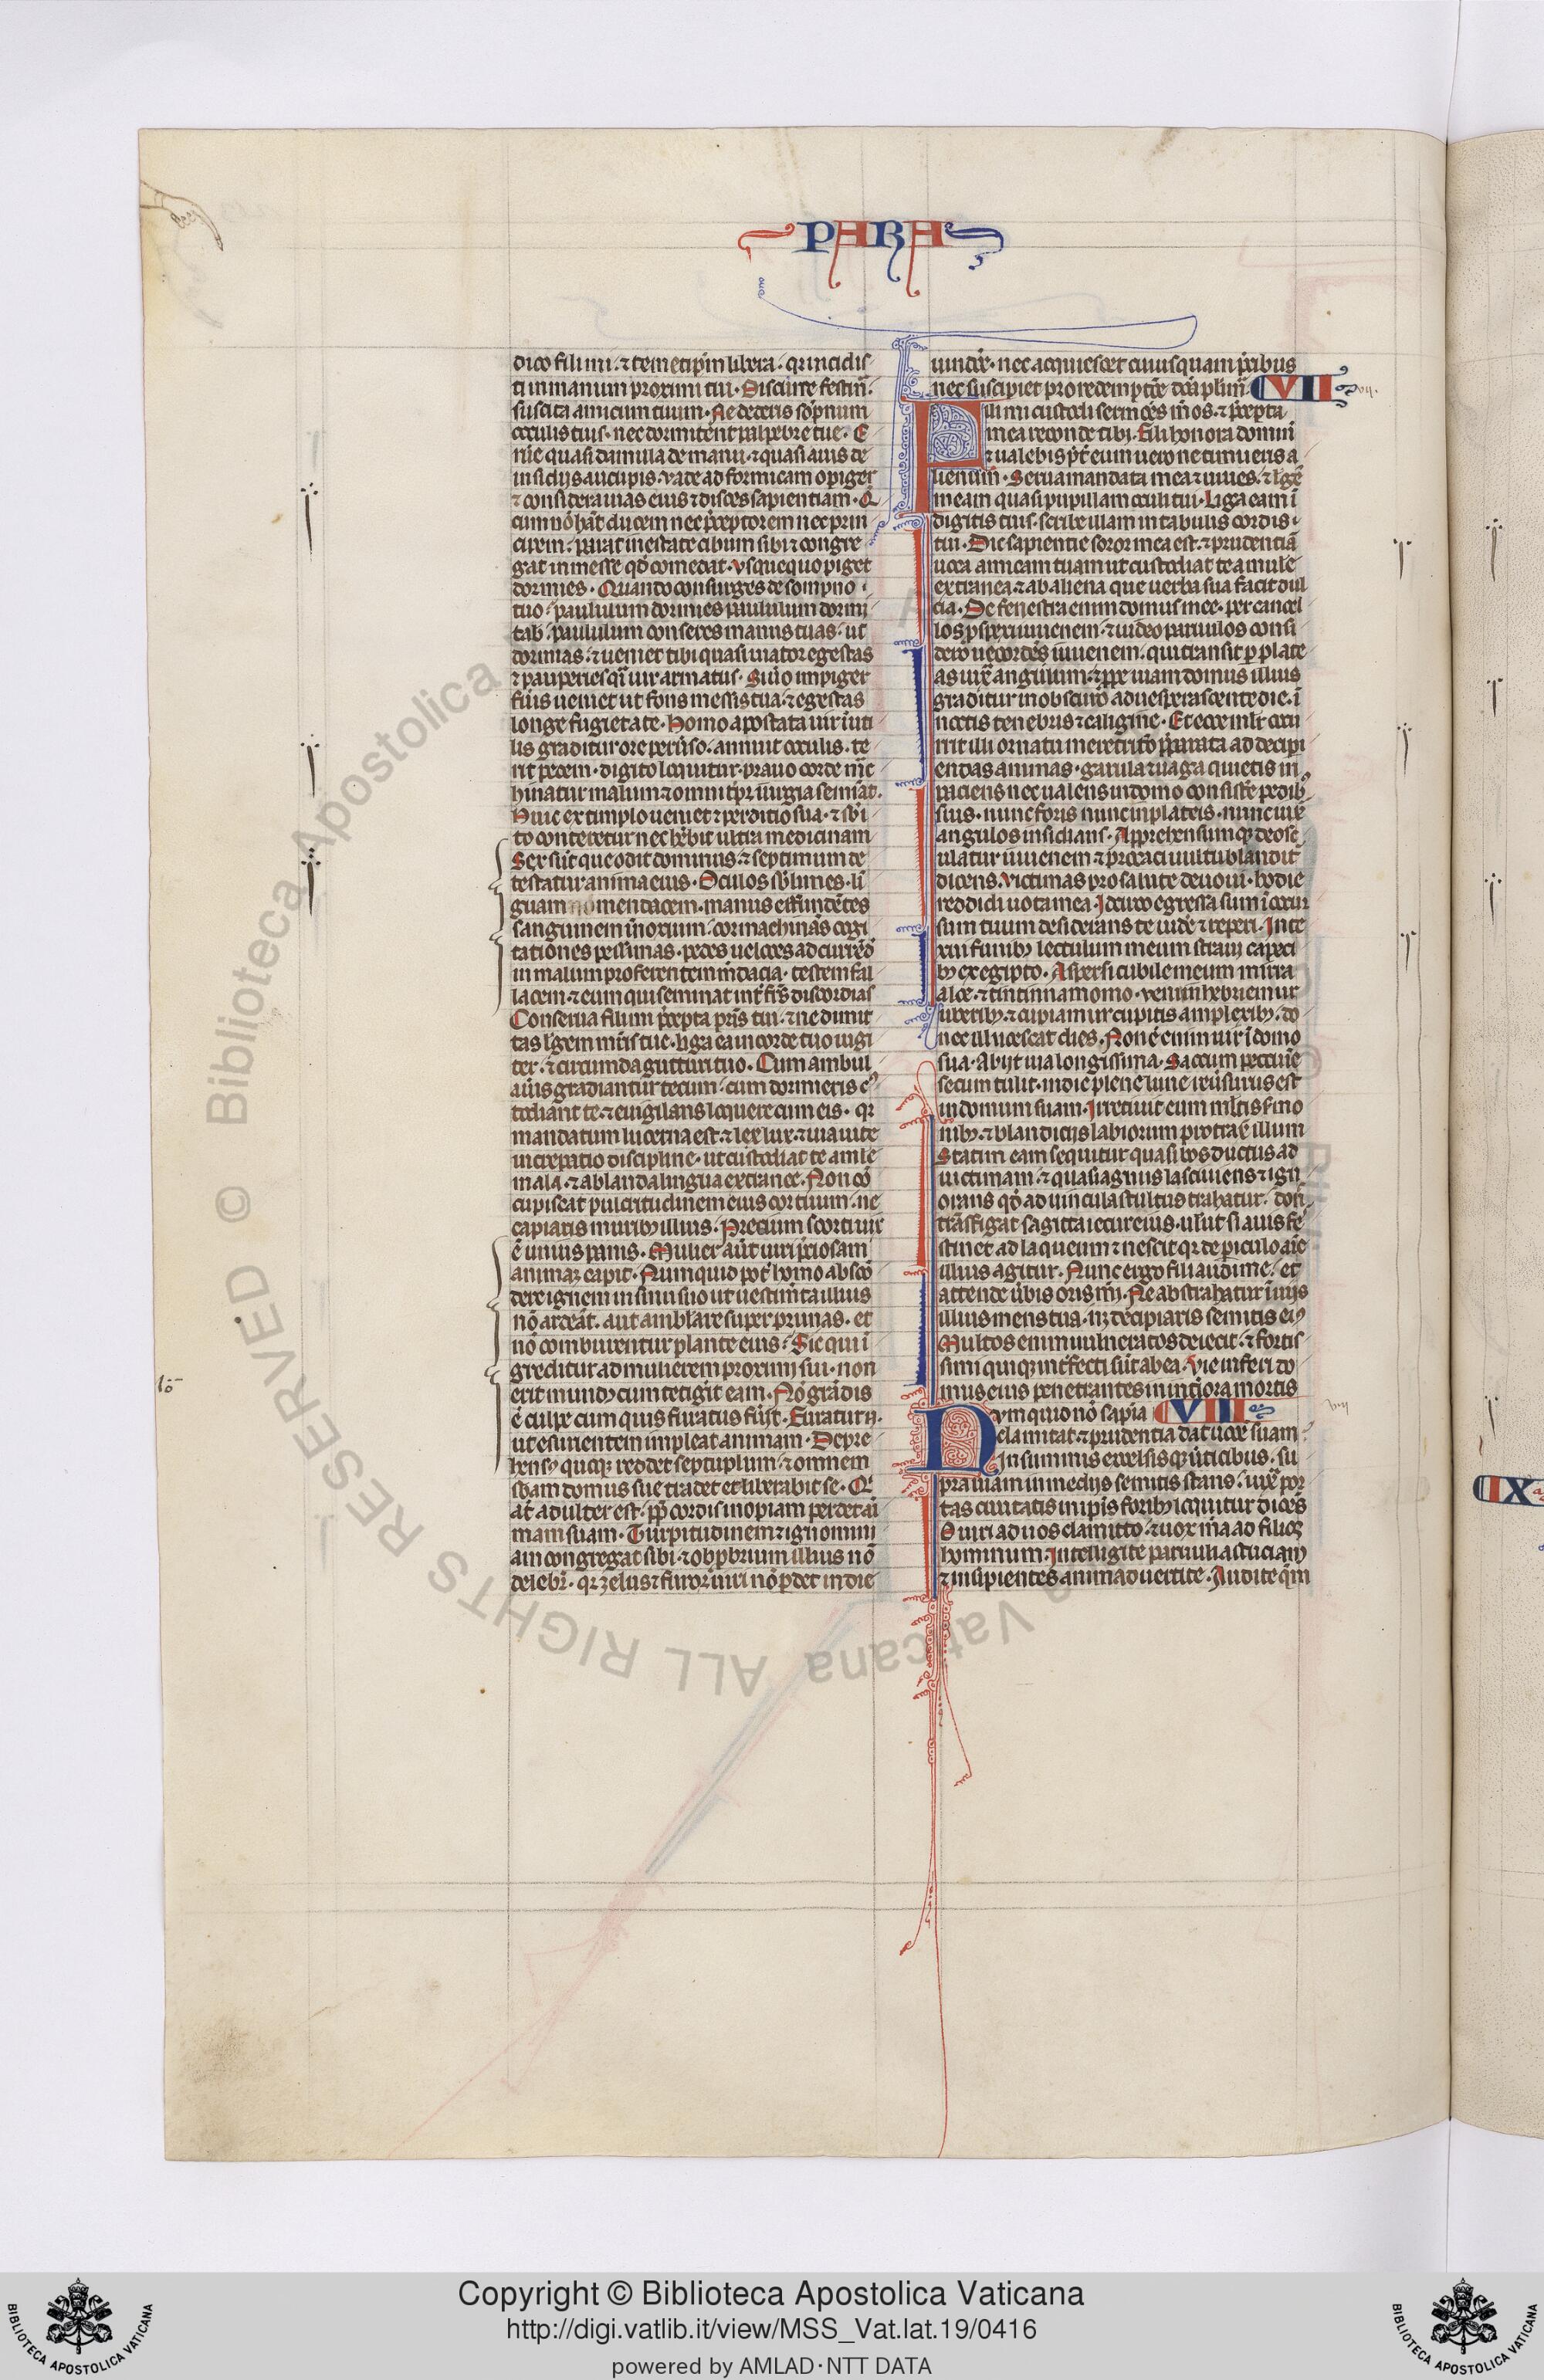 PARA
dico fili mi· ⁊ temetip̄m libera· qr incidis
ti in manum proximi tui· Discurre festin̄·
suscita amicum tuum· Ne dederis sōpnum
oculis tuis· nec dormitent palpebre tue· E
rue quasi damula de manu· ⁊ quasi auis de
insidijs aucupis· vade ad formicam o piger
⁊ considera uias eius ⁊ disces sapientiam· Q̄
cum nō hāt ducem nec p̄ceptorem nec prin
cipem· parat in estate cibum sibi ⁊ congre
gat in messe qd̄ comedat· vsquequo piger
dormies· Quando consurges de sompno
tuo· paululum dormies paululum dormi
tab· paululum conseres manus tuas· ut
dormias· ⁊ ueniet tibi quasi uiator egestas
⁊ pauperies q̄i uir armatus· Si u̇o impiger
fūis ueniet ut fons messis tua· ⁊ egestas
longe fugiet a te· Homo apostata uir īuti
lis graditur ore peruso· annuit oculis· te
rit pede· digito loquitur· prauo corde mc̄
hinatur malum ⁊ omni tp̄r iurgia semīat·
Huic extimplo ueniet ⁊ perditio sua· ⁊ sb̄i
to conteretur nec hēbit ultra medicinam
Sex sūt que odit dominus· ⁊ septimum de
testatur anima eius· Oculos sblimes· li
guam mendacem· manus effundētes
sanguinem īnoxium· cor machinās cogi
tationes pessimas· pedes ueloces ad currēd̄
in malum proferentem mēdacia· testem fal
lacem· ⁊ eum qui seminat int̄ fr̄s discordias
Conserua fili mi p̄cepta pr̄is tui· ⁊ ne dimit
tas legem mr̄is tue· liga ea in corde tuo iugi
ter· ⁊ circumda gutturi tuo· Cum ambul
aūis gradiantur tecum· cum dormieris cꝰ
todiant te· ⁊ euigilans loquere cum eis· qr
mandatum lucerna est· ⁊ lex lux· ⁊ uia uite
increpatio discipline· ut custodiat te a mle
mala· ⁊ a blanda lingua extranee· Non cō
cupiscat pulcritudinem eius cor tuum· ne
capiaris nutibꝫ illius· Precium scorti uix
ē unius panis· Mulier aūt uiri p̄ciosam
animaꝫ capit· Numquid pot̄ homo abscō
dere ignem in sinu suo ut uestimta illius
nō ardeāt· aut amblare super prunas· et
nō comburentur plante eius· Sic qui ī
greditur ad mulierem proximi sui· non
erit mundꝰ cum tetigīt eam· Nō grādis
ē culpe cum quis furatus fūit· Furatur n·
ut esurientem impleat animam· Depre
hensꝰ quoqꝫ reddet septuplum· ⁊ omnem
sbam domus sue tradet et liberabit se· Q
at̄ adulter est· pp̄ cordis inopiam perdet ai
mam suam· Turpitudinem ⁊ ignomini
am congregat sibi· ⁊ obp̄brium illius nō
delebr̄· qr zelus ⁊ furor uiri nō p̄det in die
uindc̄e· nec acquiescet cuiusquam p̄cibus
nec suscipiet pro redemptōe dōa plurim̄·
VII
vii·
Fili mi custodi sermōes mōs· ⁊ p̄cepta
mea reconde tibi· Fili honora dominū
⁊ ualebis· p̄t̄ eum uero ne timueris a
lienum· Serua mandata mea ⁊ uiues· ⁊ legē
meam quasi pupillam oculi tui· Liga eam ī
digitis tuis· scribe illam in tabulis cordis
tui· Dic sapientie soror mea est· ⁊ prudentiā
uoca amicam tuam ut custodiat te a mulē
extranea· ⁊ ab aliena que uerba sua facit dul
cia· De fenestra enim domus mee· per cancel
los p̄spexi iuuenem· ⁊ uideo paruulos consi
dero uecordēs iuuenem· qui transit p̄ plate
as iuxͣ angulum· ⁊ ppe uiam domus illius
graditur in obscuro aduesperascente die· ī
noctis tenebris ⁊ caligine· Et ecce mlr̄ occu
rrit illi ornatu meretricō p̄parata ad decipi
endas animas· garrula ⁊ uaga quietis in
paciens nec ualens in domo consistē pedibꝰ
suis· nunc foris nunc in plateis· nunc iuxͣ
angulos insidians· Apprehensumqꝫ deosc
ulatur iuuenem· ⁊ procaci uultu blandit̄
dicens· victimas pro salute deuoui· hodie
reddidi uota mea· Idcirco egressa sum ī occur
sum tuum desiderans te uide· ⁊ reperi· Inte
xui funibꝫ lectulum meum straui tapeci
bꝫ ex egipto· Aspersi cubile meum mirra
aloe· ⁊ cinnamomo· veni inhebriemur
uberibꝫ· ⁊ cupiamur cupitis amplexibꝫ· do
nec illucescat dies· Non ē enim uir ī domo
sua· abijt uia longissima· Saccum pecunie
secum tulit· in die plene lune reūsurus est
in domum suam· Irretiuit eum mltis s̄mo
nibꝫ· ⁊ blandicijs labiorum protraxͭ illum
Statim eam sequitur quasi bos ductus ad
uictimam· ⁊ quasi agnus lasciuiens ⁊ ign
orans qd̄ ad uincula stultus trahatur· don̄
trāsfigat sagitta iecur eius· uelut si auis fe
stinet ad laqueum ⁊ nescit qr de p̄iculo aīe
illius agitur· Nunc ergo fili audi me· et
attende ūbis oris mī· Ne abstrahatur ī uijs
illius mens tua· nꝫ decipiaris semitis eiꝰ
Multos enim uulneratos deiecit· ⁊ fortis
simi quiqꝫ int̄fecti sūt ab ea· Vie inferi do
mus eius penetrantes in int̄iora mortis
Nvmquid nō sapia
VIII
viii
clamitat· ⁊ prudentia dat uocē suam·
In summis excelsisqꝫ ūticibus· su
pra uiam in medijs semitis stans· iuxͣ por
tas ciuitatis in ip̄is foribꝫ loquitur dicēs
O uiri ad uos clamito· ⁊ uox mīa ad filios
hominum· Intelligite paruuli astuciam
⁊ insipientes animaduertite· Audite qm̄
IX
Copyright © Biblioteca Apostolica Vaticana
http://digi.vatlib.it/view/MSS_Vat.lat.19/0416
powered by AMLAD·NTT DATA
BIBLIOTECA APOSTOLICA VATICANA
BIBLIOTECA APOSTOLICA VATICANA
© Biblioteca Apostolica Vaticana ALL RIGHTS RESERVED